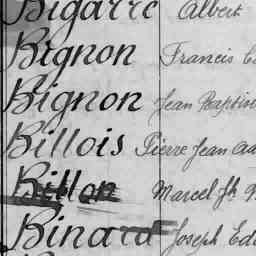 Bigarré Albert
Bignon Francis
Bignon Jean Baptis
Billois Pierre Jean
Billon Marcel Jh
Binard Joseph Ed